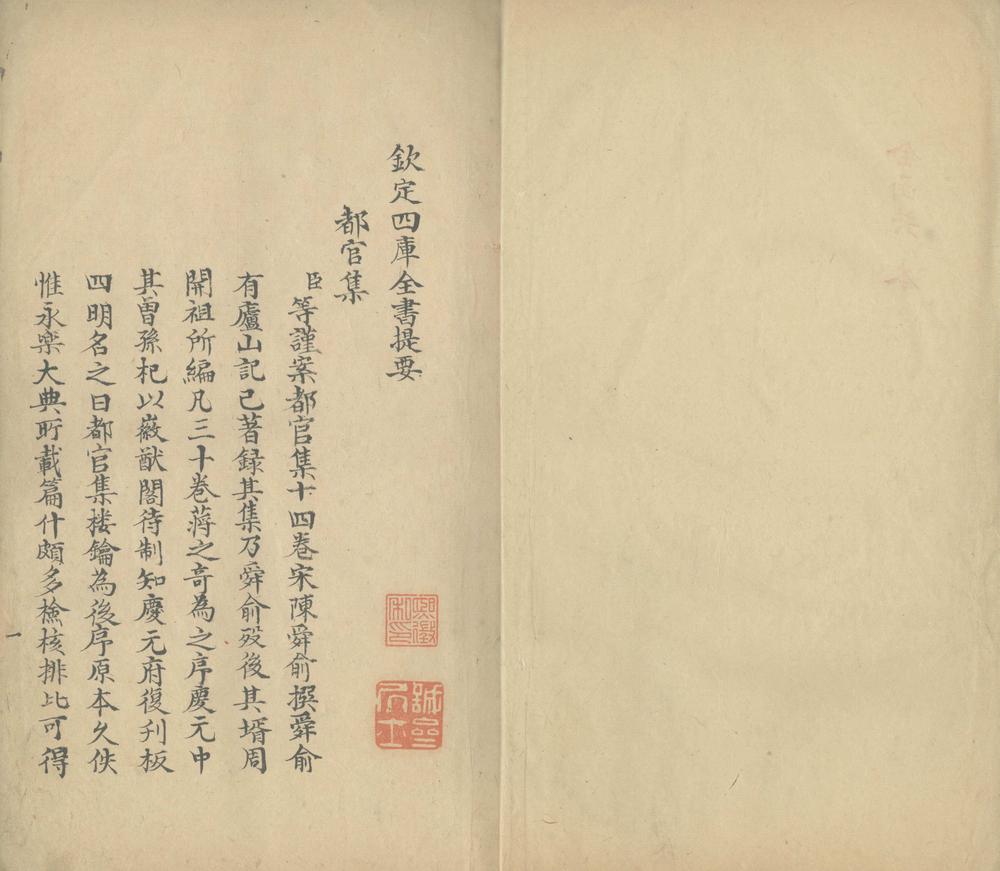 欽定四庫全書提要
都官集
臣等謹案都官集十四卷宋陳舜俞撰舜俞
有廬山記已著録其集乃舜俞歿後其壻周
開祖所編凡三十卷蔣之奇為之序慶元中
其曾孫杞以徽猷閣待制知慶元府復刋板
四明名之曰都官集楼鑰為後序原本久佚
惟永樂大典所載篇什頗多檢核排比可得
一